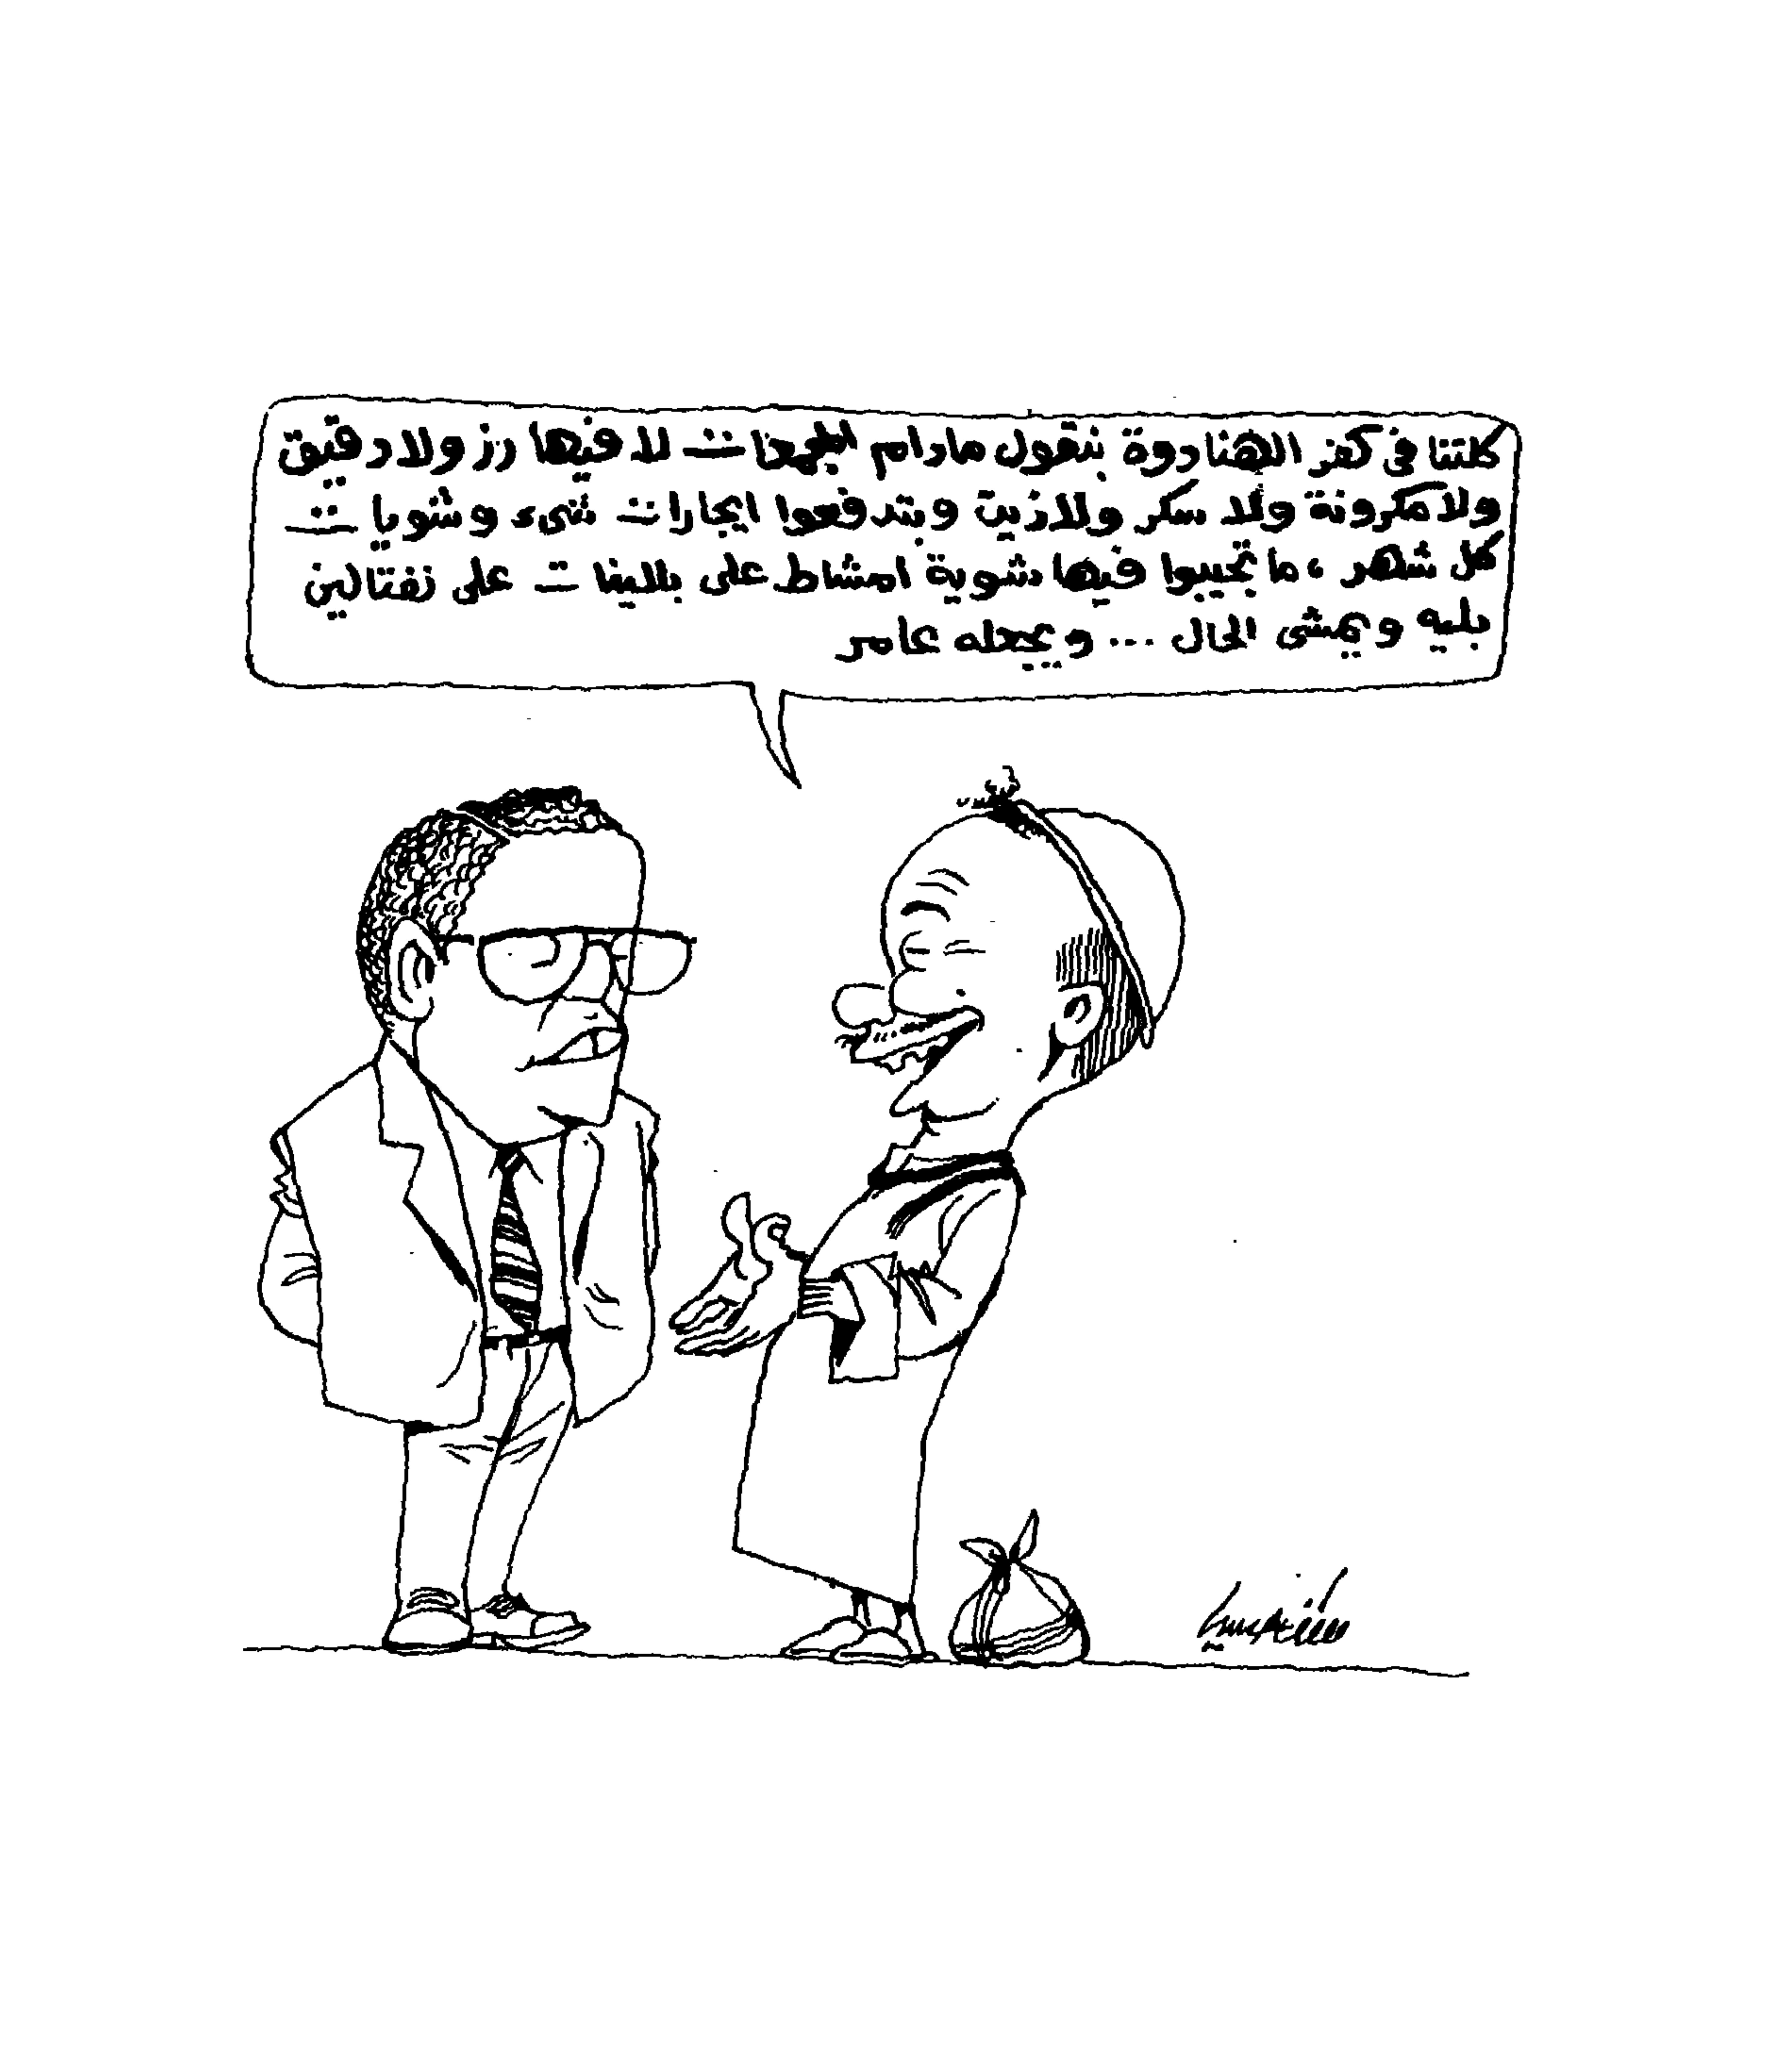 كلتنا فى كفر الهنادوة بنقول مادام الجمعات لا فيها رز ولا دقيق
ولا مكرونة ولا سكر ولا زيت وبتدفعوا ايجارات شىء وشويات
كل شهر، ما تجيبوا فيها شوية امشاط على بللينات على نفتالين
بليه ويمشى الحال ... ويجعله عامر